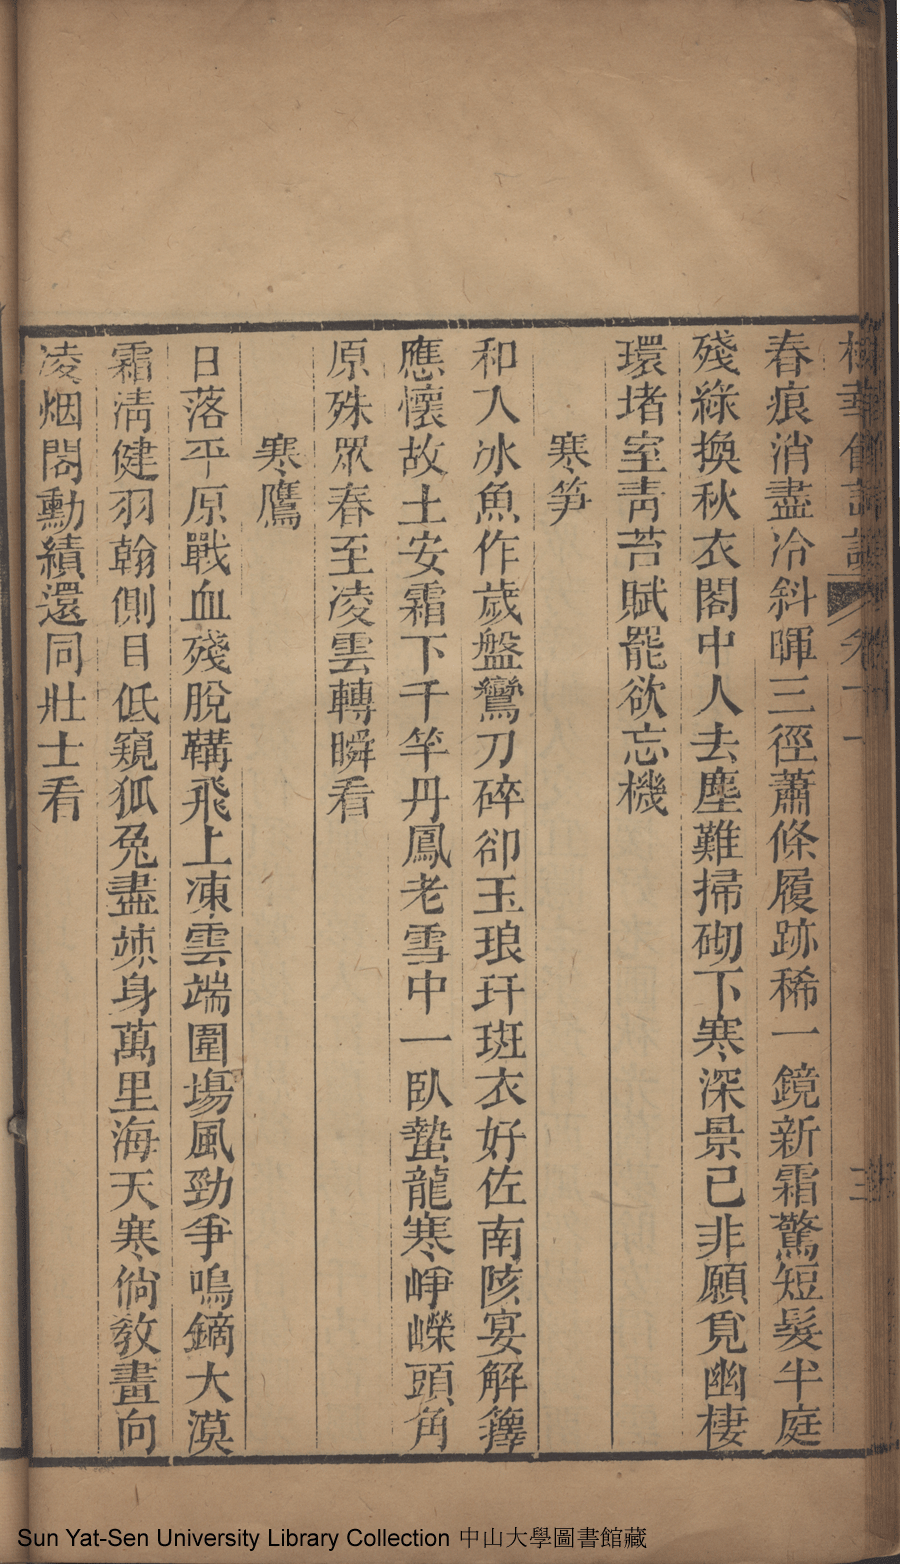 春痕消盡冷斜暉三徑蕭條履跡稀一鏡新霜驚短髮半庭
殘綠換秋衣閣中人去塵難掃砌下寒深景已非願覓幽棲
環堵室靑苔賦罷欲忘機
寒笋
和入冰魚作歲盤鸞刀碎卻玉琅玕班衣好佐南陔宴解籜
應懷故土安霜下千竿丹鳳老雪中一臥蟄龍寒崢嶸頭角
原殊眾春至凌雲轉瞬看
寒鷹
日落平原戰血殘脫鞲飛上凍雲端圍塲風勁爭鳴鏑大漠
霜淸健羽翰側目低窺狐兔盡竦身萬里海天寒倘敎畫向
凌烟閣勳績還同壯士看
Sun Yat-Sen University Library Collection 中山大學圖書館藏